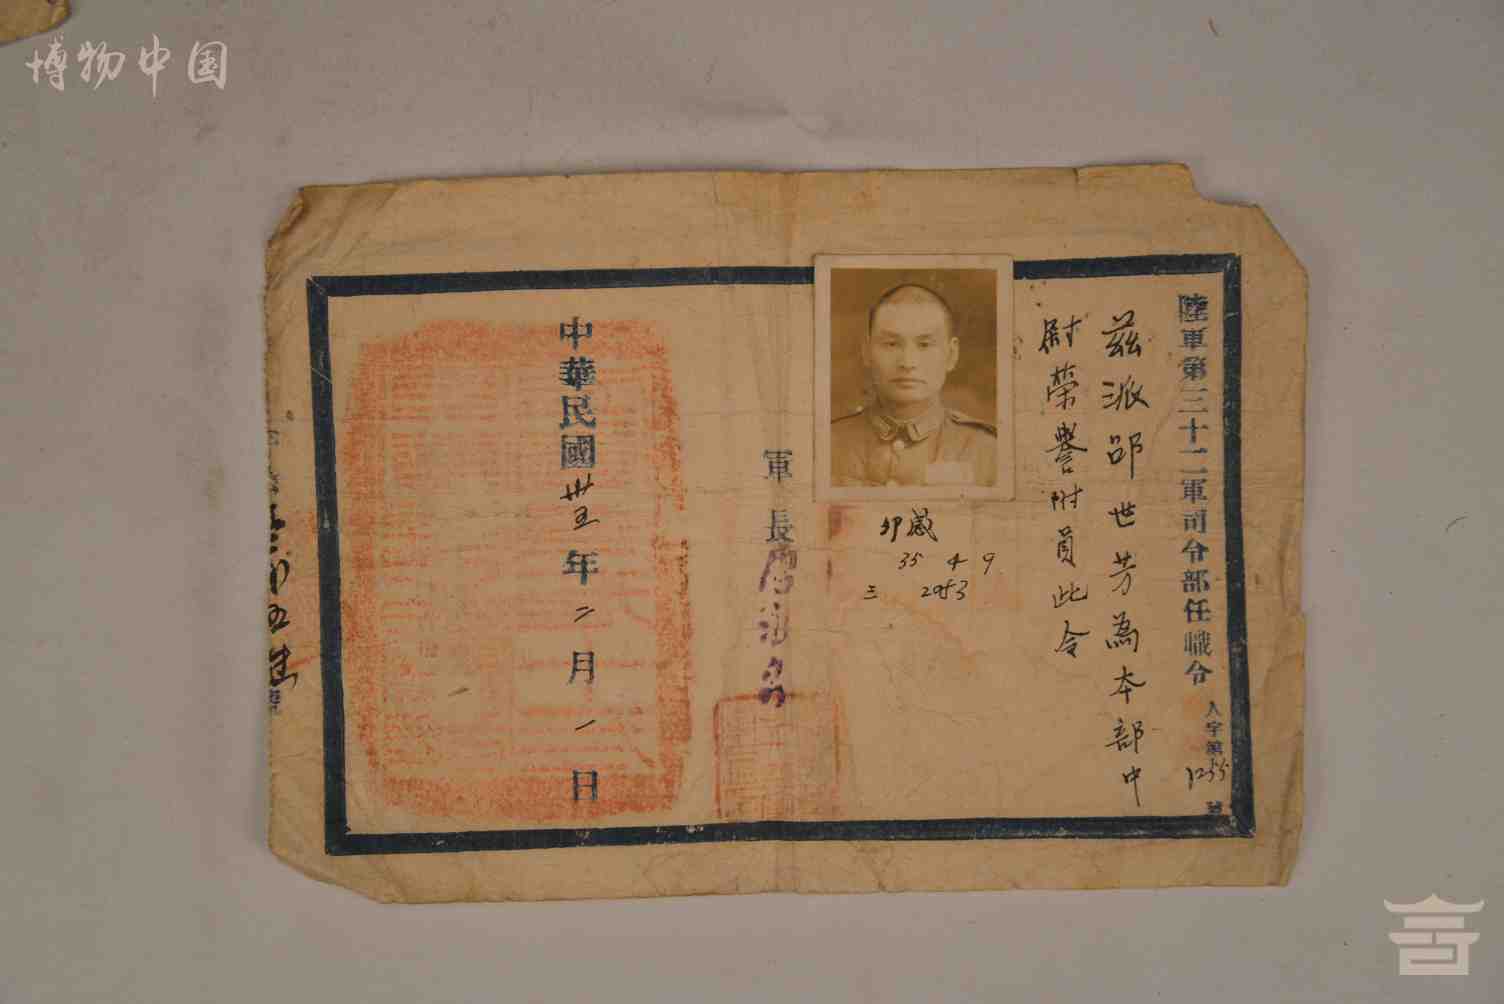 博物中国
陸軍第三十二軍司令部任職令
人字第1255號
茲派邵世芳為本部中
尉榮譽附員此令
印歲
35 4 9
三 2953
軍長唐永良
中華民國卅五年二月一日